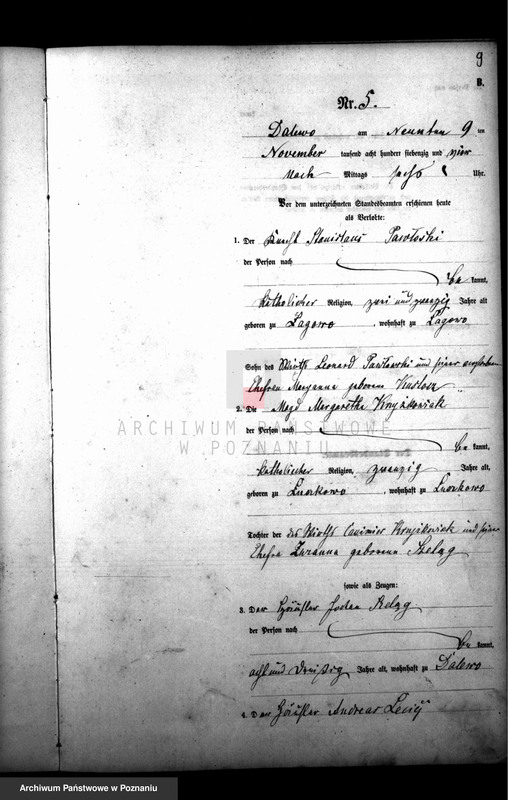 9
B.
Nr. 5.
Dalewo am Neunten 9 ten
November tausend acht hundert siebenzig und vier
Nach Mittags sechs Uhr.
Vor dem unterzeichneten Standesbeamten erschienen heute
als Verlobte:
1. Der Knecht Stanislaus Pawloski
der Person nach
be kannt,
katholischer Religion, zwei und zwanzig Jahre alt
geboren zu Lagowo, wohnhaft zu Lagowo
Sohn des Wirths Leonard Pawlowski und seiner verstorbenen
Ehefrau Maryanna geborene
2. Die Magd Margaretha Krzyżkowiak
der Person nach
be kannt,
katholischer Religion, zwanzig Jahre alt,
geboren zu Lnorkowo, wohnhaft zu Lnorkowo
Tochter der des Wirths Casimier Krzyżkowiak und seiner
Ehefrau Zuzanna geborene Szeląg
sowie als Zeugen:
3. Der Häusler
der Person nach
be kannt,
acht und dreißig Jahre alt, wohnhaft zu Dalewo
4. Der Häusler Andreas
ARCHIWUM PAŃSTWOWE
W POZNANIU
Archiwum Państwowe w Poznaniu